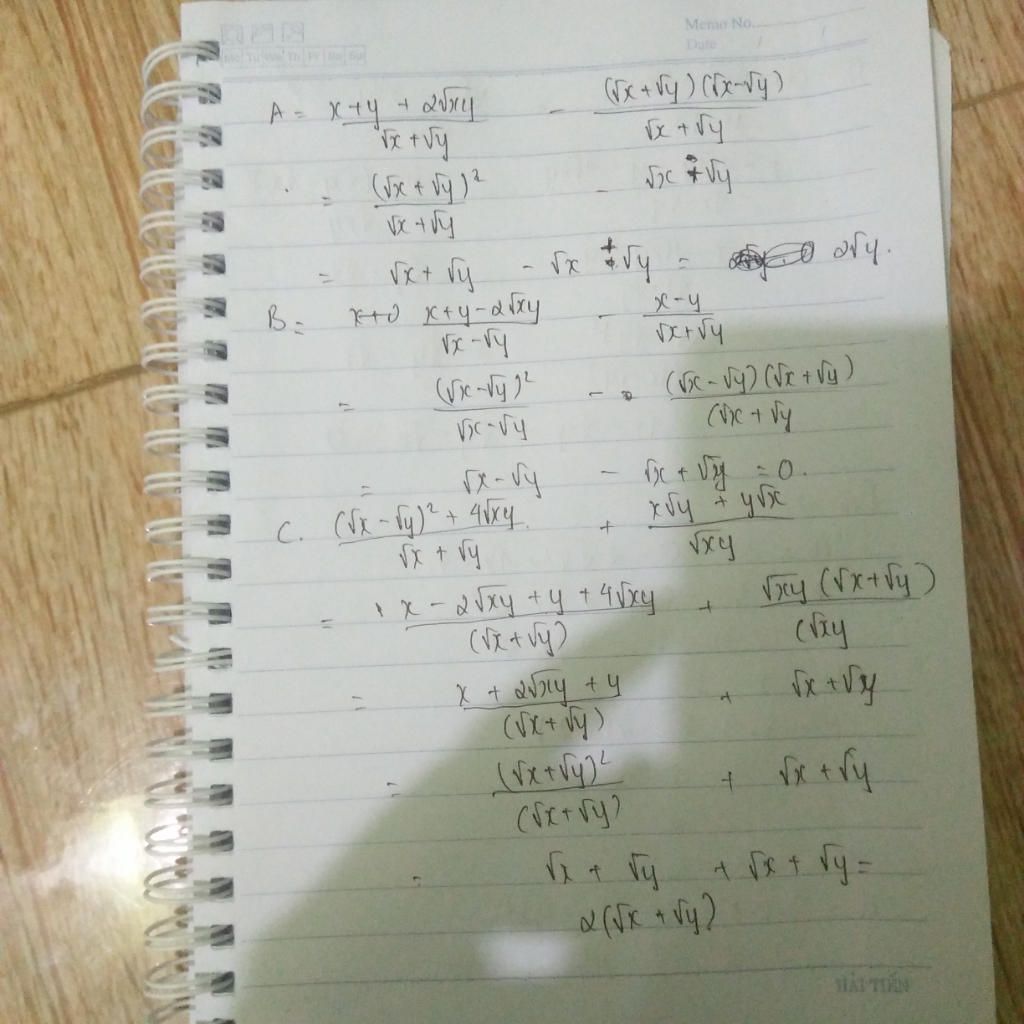 Memo No.
Date / /
Mo Tu We Th Fr Sa Su
A = (x + y + 2√xy)/(√x + √y) - ((√x + √y)(√x - √y))/(√x + √y)
= (√x + √y)²/(√x + √y) - √x + √y
= √x + √y - √x + √y = 2√y.
B = (x + y - 2√xy)/(√x - √y) - (x - y)/(√x + √y)
= (√x - √y)²/(√x - √y) - ((√x - √y)(√x + √y))/(√x + √y
= √x - √y - √x + √y = 0.
C. ((√x - √y)² + 4√xy)/(√x + √y) + (x√y + y√x)/√xy
= (x - 2√xy + y + 4√xy)/(√x + √y) + (√xy (√x + √y))/(√xy
= (x + 2√xy + y)/(√x + √y) + √x + √y
= (√x + √y)²/(√x + √y) + √x + √y
= √x + √y + √x + √y =
2(√x + √y)
HẢI TIẾN